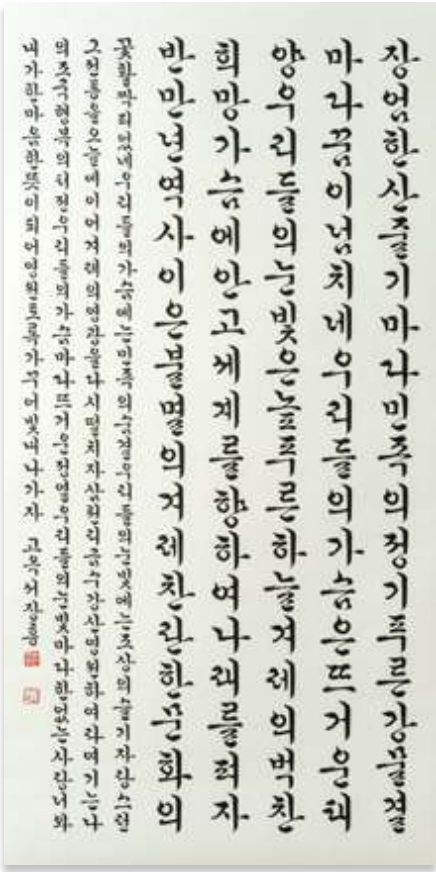 장엄한산줄기마다민족의정기푸른강물결
마다꿈이넘치네우리들의가슴은뜨거운태
양우리들의눈빛은늘푸른하늘겨레의벅찬
희망가슴에안고세계를향하여나래를펴자
반만년역사이은불멸의겨레찬란한문화의
꽃활짝피웠네우리들의가슴에는민족의숨결우리들의눈빛에는조상의슬기자랑스런
그전통을오늘에이어겨레의영광을다시떨치자삼천리금수강산영원하여라여기는나
의조국행복의터전우리들의가슴마다뜨거운정열우리들의눈빛마다한없는사랑너와
내가한마음한뜻이되어영원토록가꾸어빛내나가자